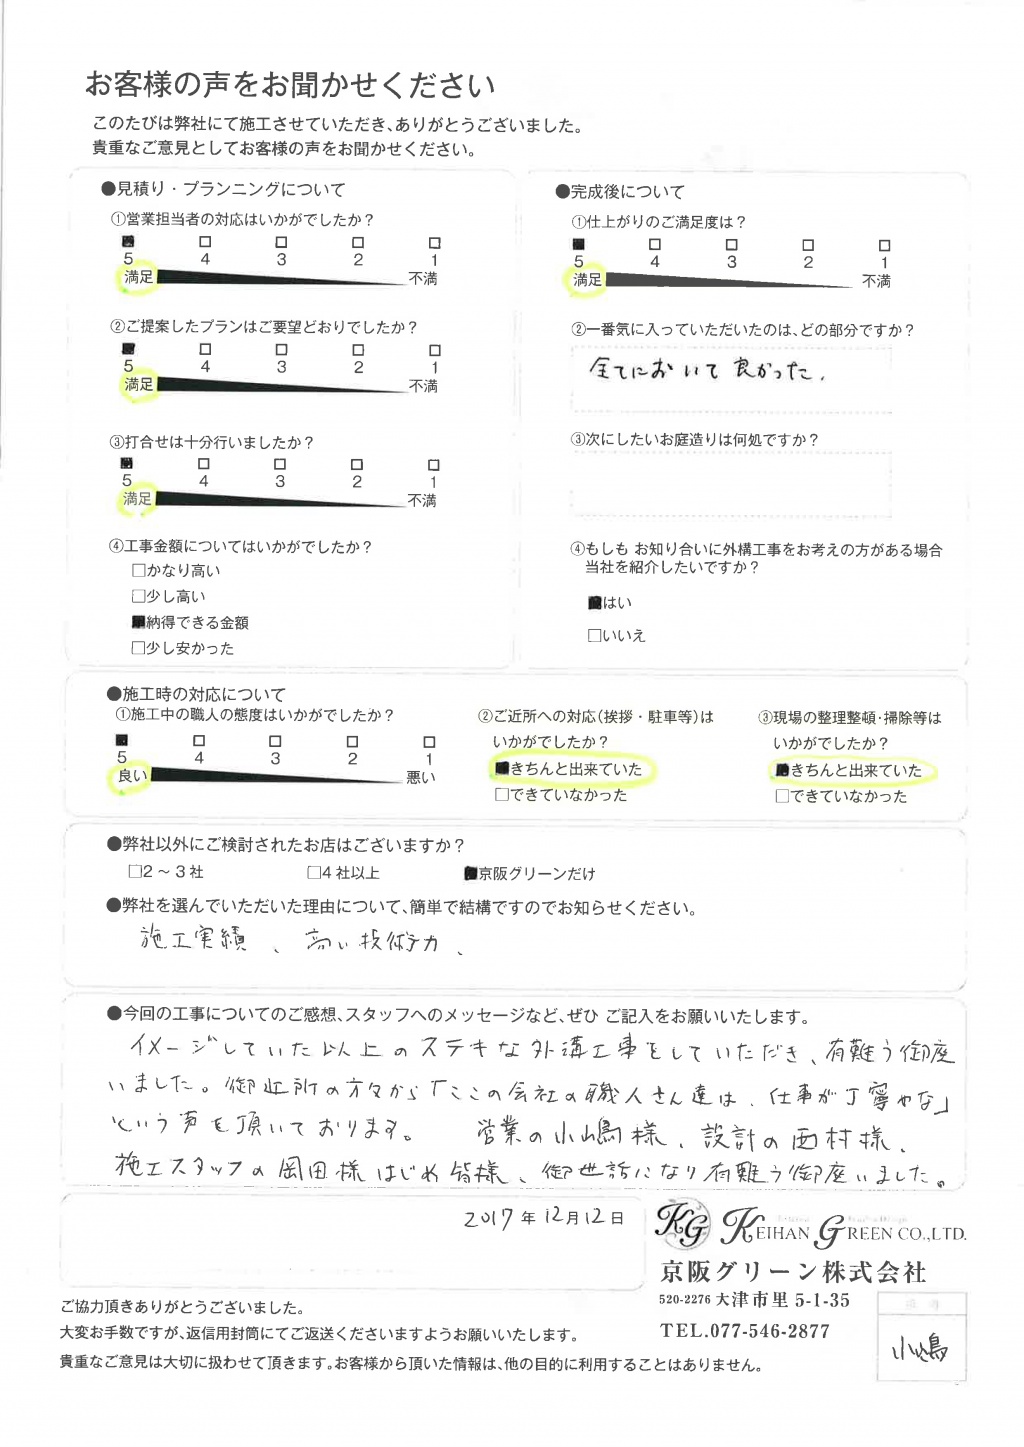 お客様の声をお聞かせください
このたびは弊社にて施工させていただき、ありがとうございました。
貴重なご意見としてお客様の声をお聞かせください。
●見積り・プランニングについて
①営業担当者の対応はいかがでしたか？
■ □ □ □ □
5 4 3 2 1
満足 不満
②ご提案したプランはご要望どおりでしたか？
■ □ □ □ □
5 4 3 2 1
満足 不満
③打合せは十分行いましたか？
■ □ □ □ □
5 4 3 2 1
満足 不満
④工事金額についてはいかがでしたか？
□かなり高い
□少し高い
■納得できる金額
□少し安かった
●完成後について
①仕上がりのご満足度は？
■ □ □ □ □
5 4 3 2 1
満足 不満
②一番気に入っていただいたのは、どの部分ですか？
全てにおいて良かった.
③次にしたいお庭造りは何処ですか？
④もしも お知り合いに外構工事をお考えの方がある場合
当社を紹介したいですか？
■はい
□いいえ
●施工時の対応について
①施工中の職人の態度はいかがでしたか？
■ □ □ □ □
5 4 3 2 1
良い 悪い
②ご近所への対応（挨拶・駐車等）は
いかがでしたか？
■きちんと出来ていた
□できていなかった
③現場の整理整頓・掃除等は
いかがでしたか？
■きちんと出来ていた
□できていなかった
●弊社以外にご検討されたお店はございますか？
□2～3社 □4社以上 ■京阪グリーンだけ
●弊社を選んでいただいた理由について、簡単で結構ですのでお知らせください。
施工実績、高い技術力、
●今回の工事についてのご感想、スタッフへのメッセージなど、ぜひ ご記入をお願いいたします。
イメージしていた以上のステキな外溝工事をしていただき、有難う御座
いました。御近所の方々から「ここの会社の職人さん達は、仕事が丁寧やな」
という声を頂いております。 営業の小嶋様、設計の西村様、
施工スタッフの岡田様はじめ皆様、御世話になり有難う御座いました。
2017年12月12日
KG KEIHAN GREEN CO.,LTD.
京阪グリーン株式会社
520-2276 大津市里 5-1-35
TEL.077-546-2877
小嶋
ご協力頂きありがとうございました。
大変お手数ですが、返信用封筒にてご返送くださいますようお願いいたします。
貴重なご意見は大切に扱わせて頂きます。お客様から頂いた情報は、他の目的に利用することはありません。